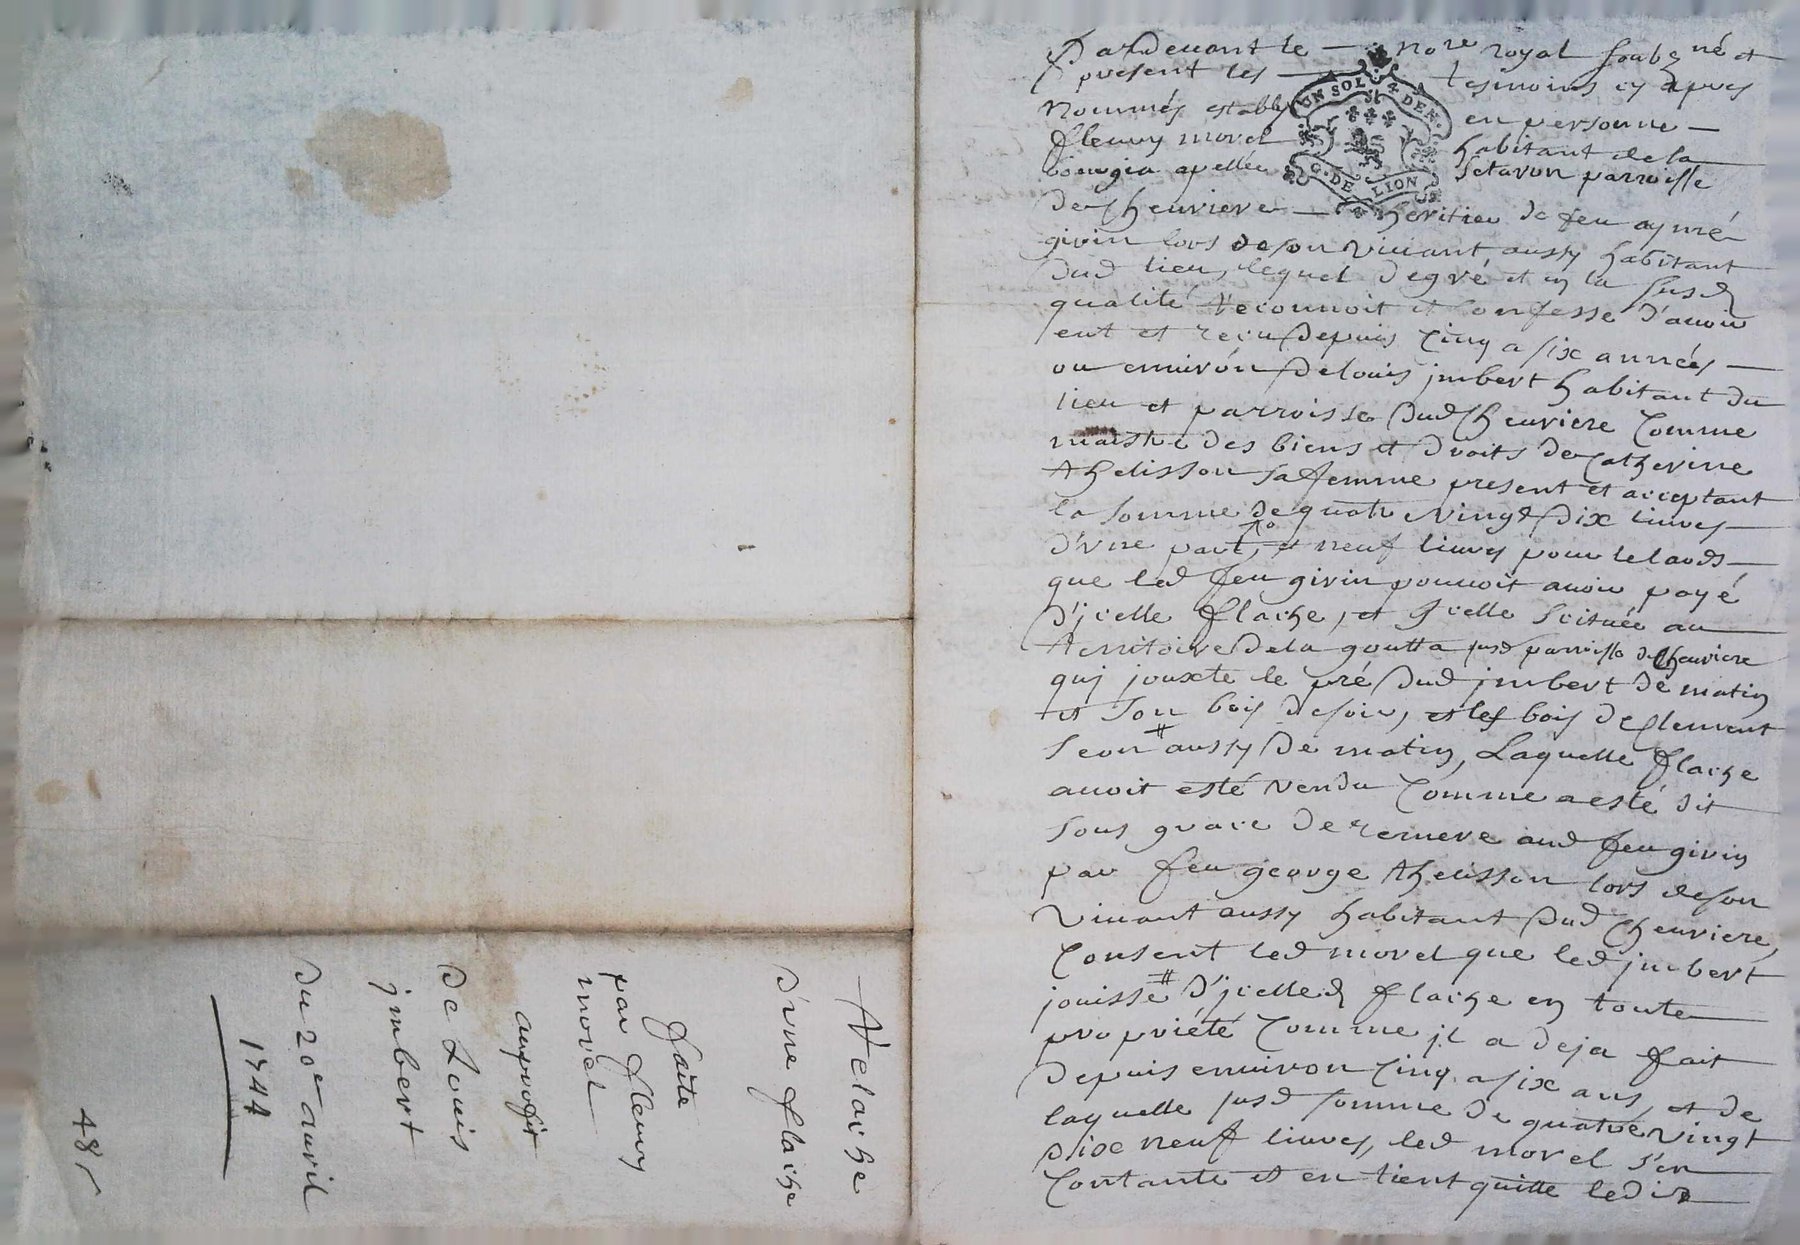 Pardevant le — nore royal soubz né et
present les — tesmoins cy apres
nommés estably en personne —
fleury morel habitant de la
apellée parroisse
de Cheuriere — heritier de feu aymé
girin lors de son viuant, aussy habitant
dud lieu, lequel de gré et en la susd
qualité reconnoit et Confesse d'auoir
eut et receu depuis Cinq a six années —
ou enuiron de louis jmbert habitant du
lieu et parroisse dud Cheuriere Comme
maistre des biens et droits de Catherine
thelisson sa femme present et acceptant
la somme de quatre Vingt dix liures —
d'vne part, et neuf liures pour le laods —
que led feu girin pouuoit auoir payé
d'jcelle flache, et Jcelle scituée au
territoire de la goutta susd parroisse de Cheuriere
quj jouxte le pré dud jmbert de matin
et son bois de soir, et les bois de Clement
seon # aussy de matin, Laquelle flache
auoit esté vendu Comme a esté dit
sous grace de remere aud feu girin
par feu george thelisson lors de son
Viuant aussy habitant dud Cheuriere,
Consent led morel que led jmbert
jouisse # d'jcelle d flache en toute
propriété Comme jl a deja fait
depuis enuiron Cinq a six ans, et de
laquelle susd somme de quatre vingt
dixe neuf liures, led morel s'en
Contante et en tient quitte led
UN SOL 4 DEN.
G. DE LION
Relache
d'vne flache
faite
par fleury
morel
au profit
de Louis
jmbert
du 20e auril
1744
48